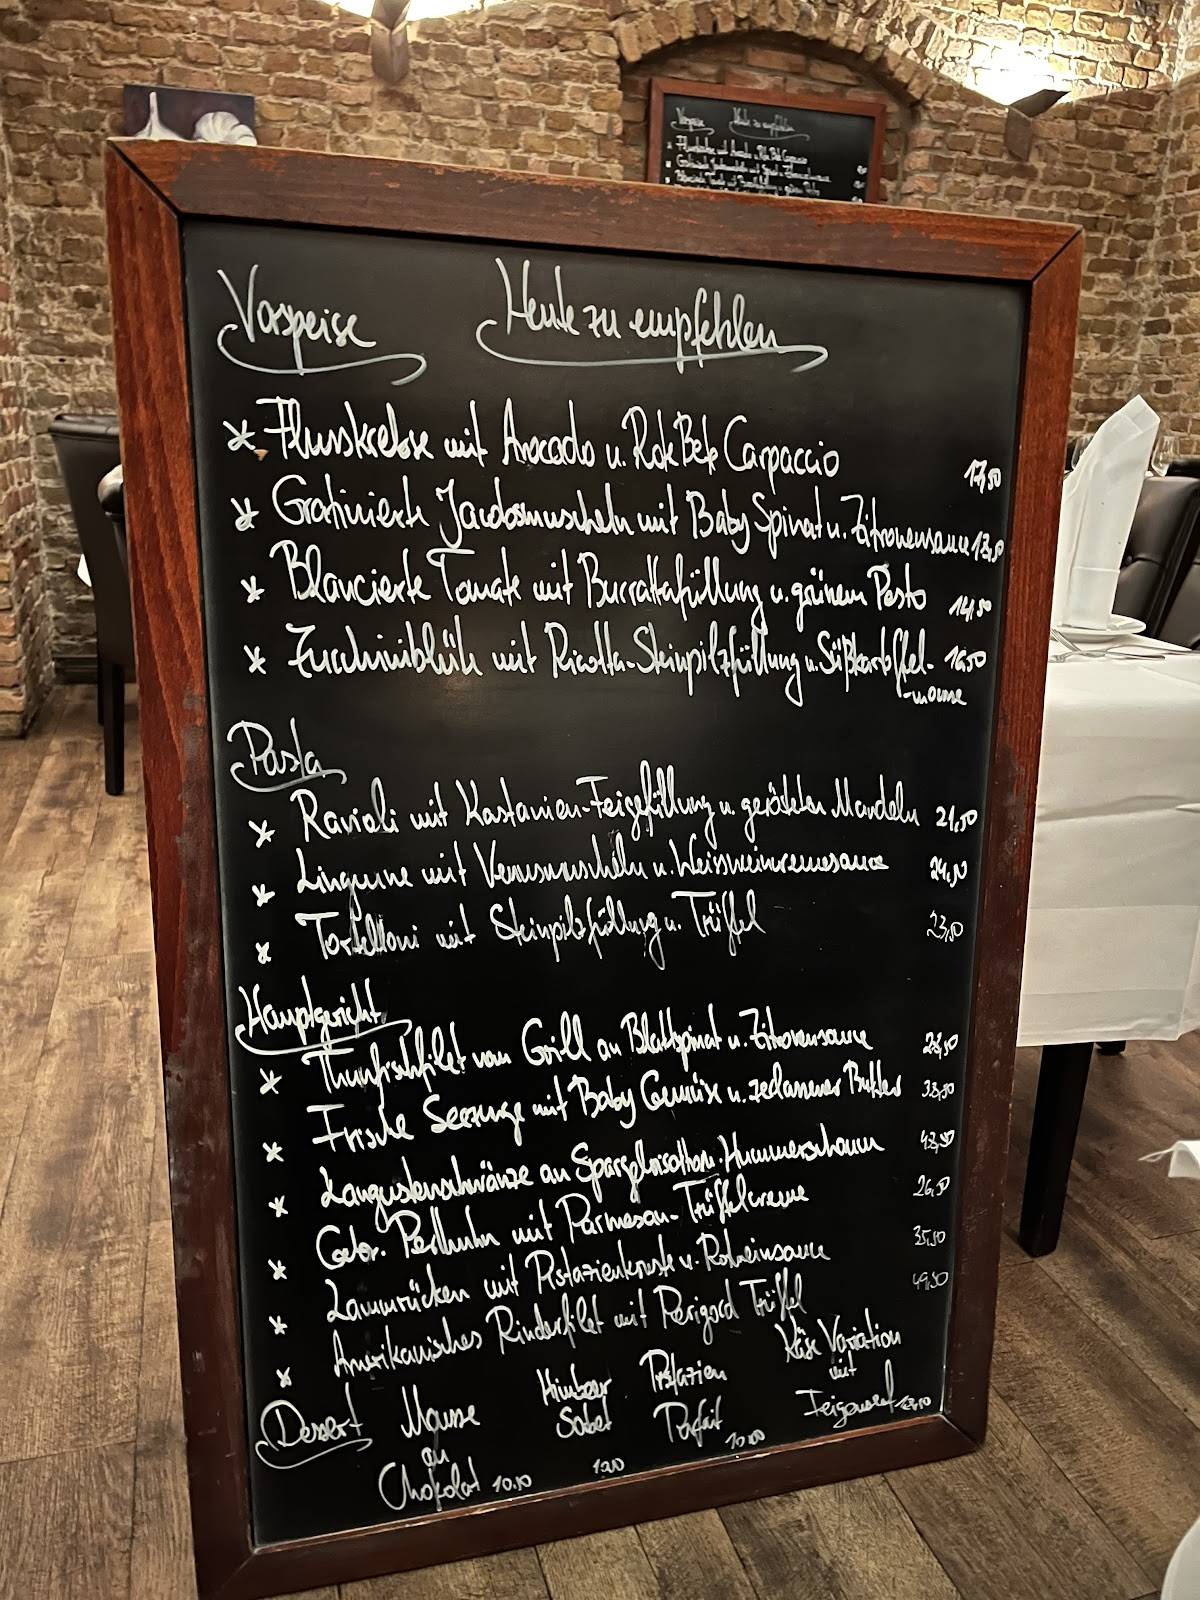 Vorspeise Heute zu empfehlen
* Flusskrebse mit Avocado u. Rote Bete Carpaccio
* Gratinierte Jacobsmuscheln mit Baby Spinat u. Zitronensauce 13,50
* Blancierte Tomate mit Burrattafüllung u. grünem Pesto 14,50
* Zucchiniblüte mit Ricotta-Steinpilzfüllung u. Süßkartoffel- 16,50
-mousse
Pasta
* Ravioli mit Kastanien-Feigefüllung u. gerösteten Mandeln 21,50
* Linguine mit Venusmuscheln u. Weissweincremesauce 24,50
* Tortelloni mit Steinpilzfüllung u. Trüffel 23,50
Hauptgericht
* Thunfischfilet vom Grill an Blattspinat u. Zitronensauce 28,50
* Frische Seezunge mit Baby Gemüse u. zerlassener Butter 33,50
* Langustenschwänze an Spargelrisotto u. Hummerschaum 43,50
* Gebr. Perlhuhn mit Parmesan-Trüffelcreme 26,50
* Lammrücken mit Pistazienkruste u. Rotweinsauce 35,50
* Amerikanisches Rinderfilet mit Perigord Trüffel 49,50
Dessert
Mousse
au
Chokolat 10.50
Himbeer
Sobet
Pistazien
Parfait
Käse Variation
mit
Feigensenf
Vorspeise Heute zu empfehlen